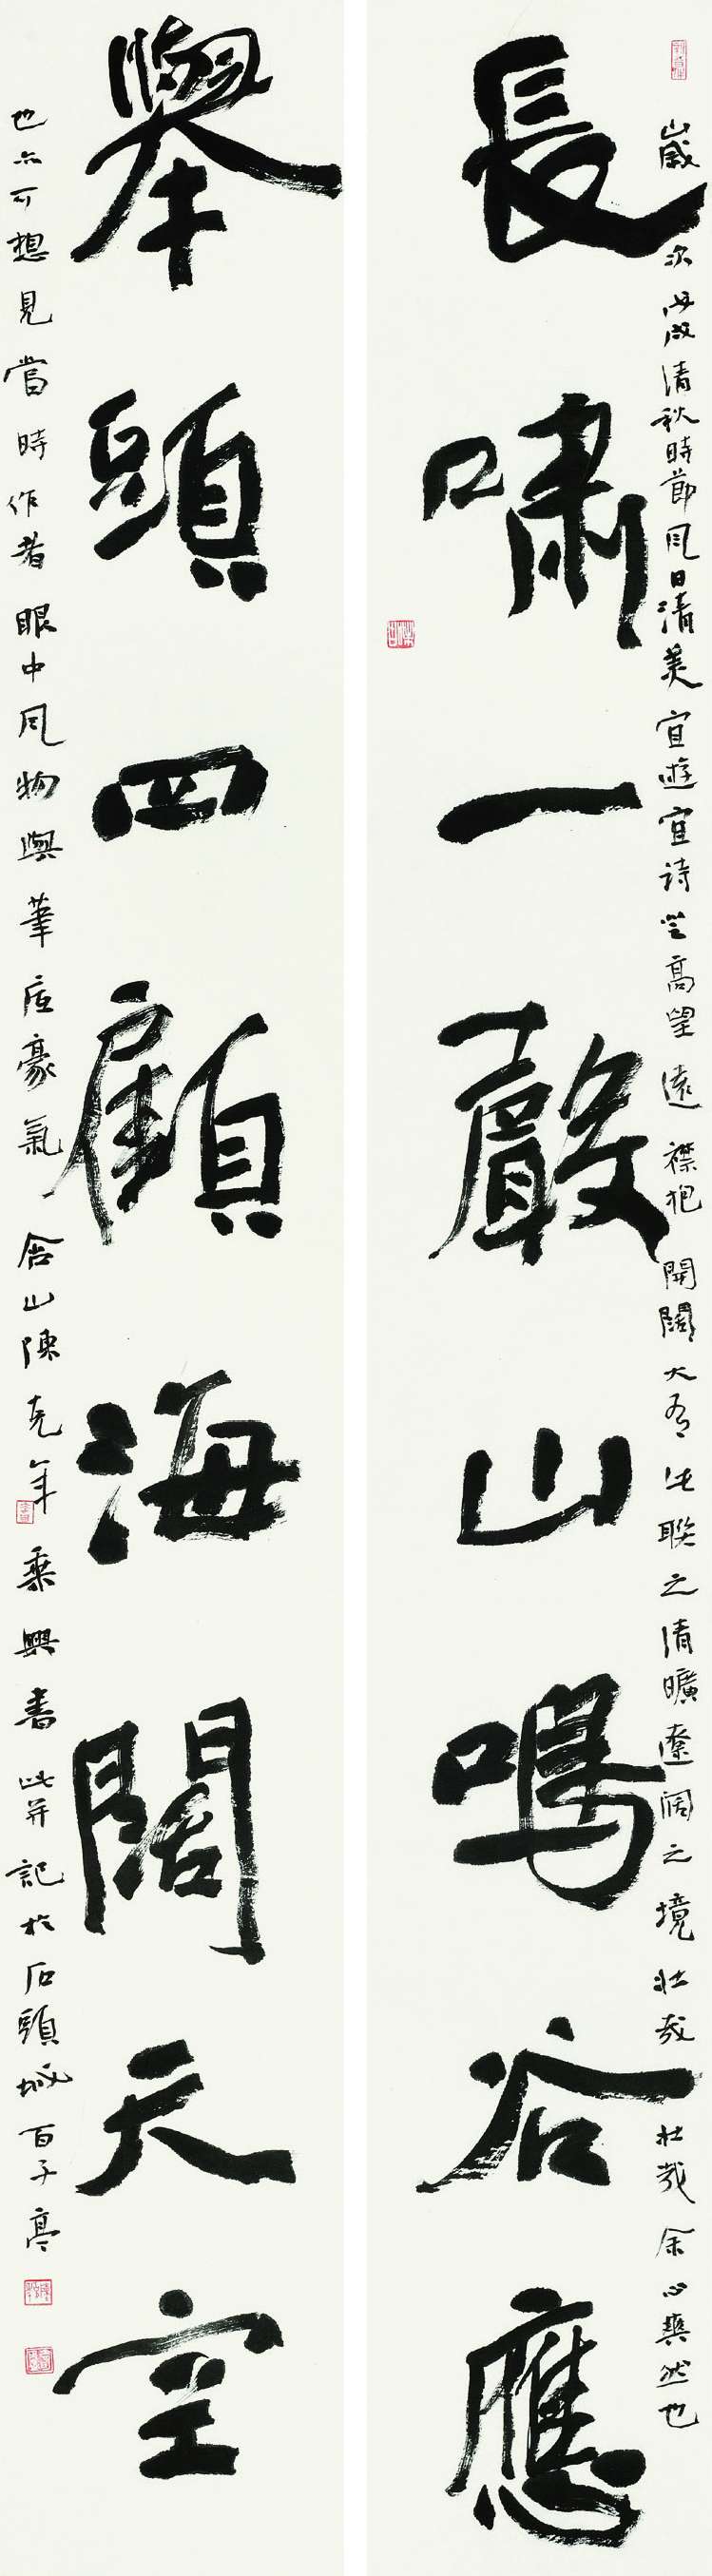 歲次丙戌清秋時節風日清美宜遊宜诗登高望遠襟抱開闊大有此聯之清曠遼阔之境壯哉壯哉余心爽然也
長嘯一聲山鳴谷應
舉頭四顧海闊天空
也亦可想見當時作者眼中風物與筆底豪氣含山陳克年乘興書此并記於石頭城百子亭